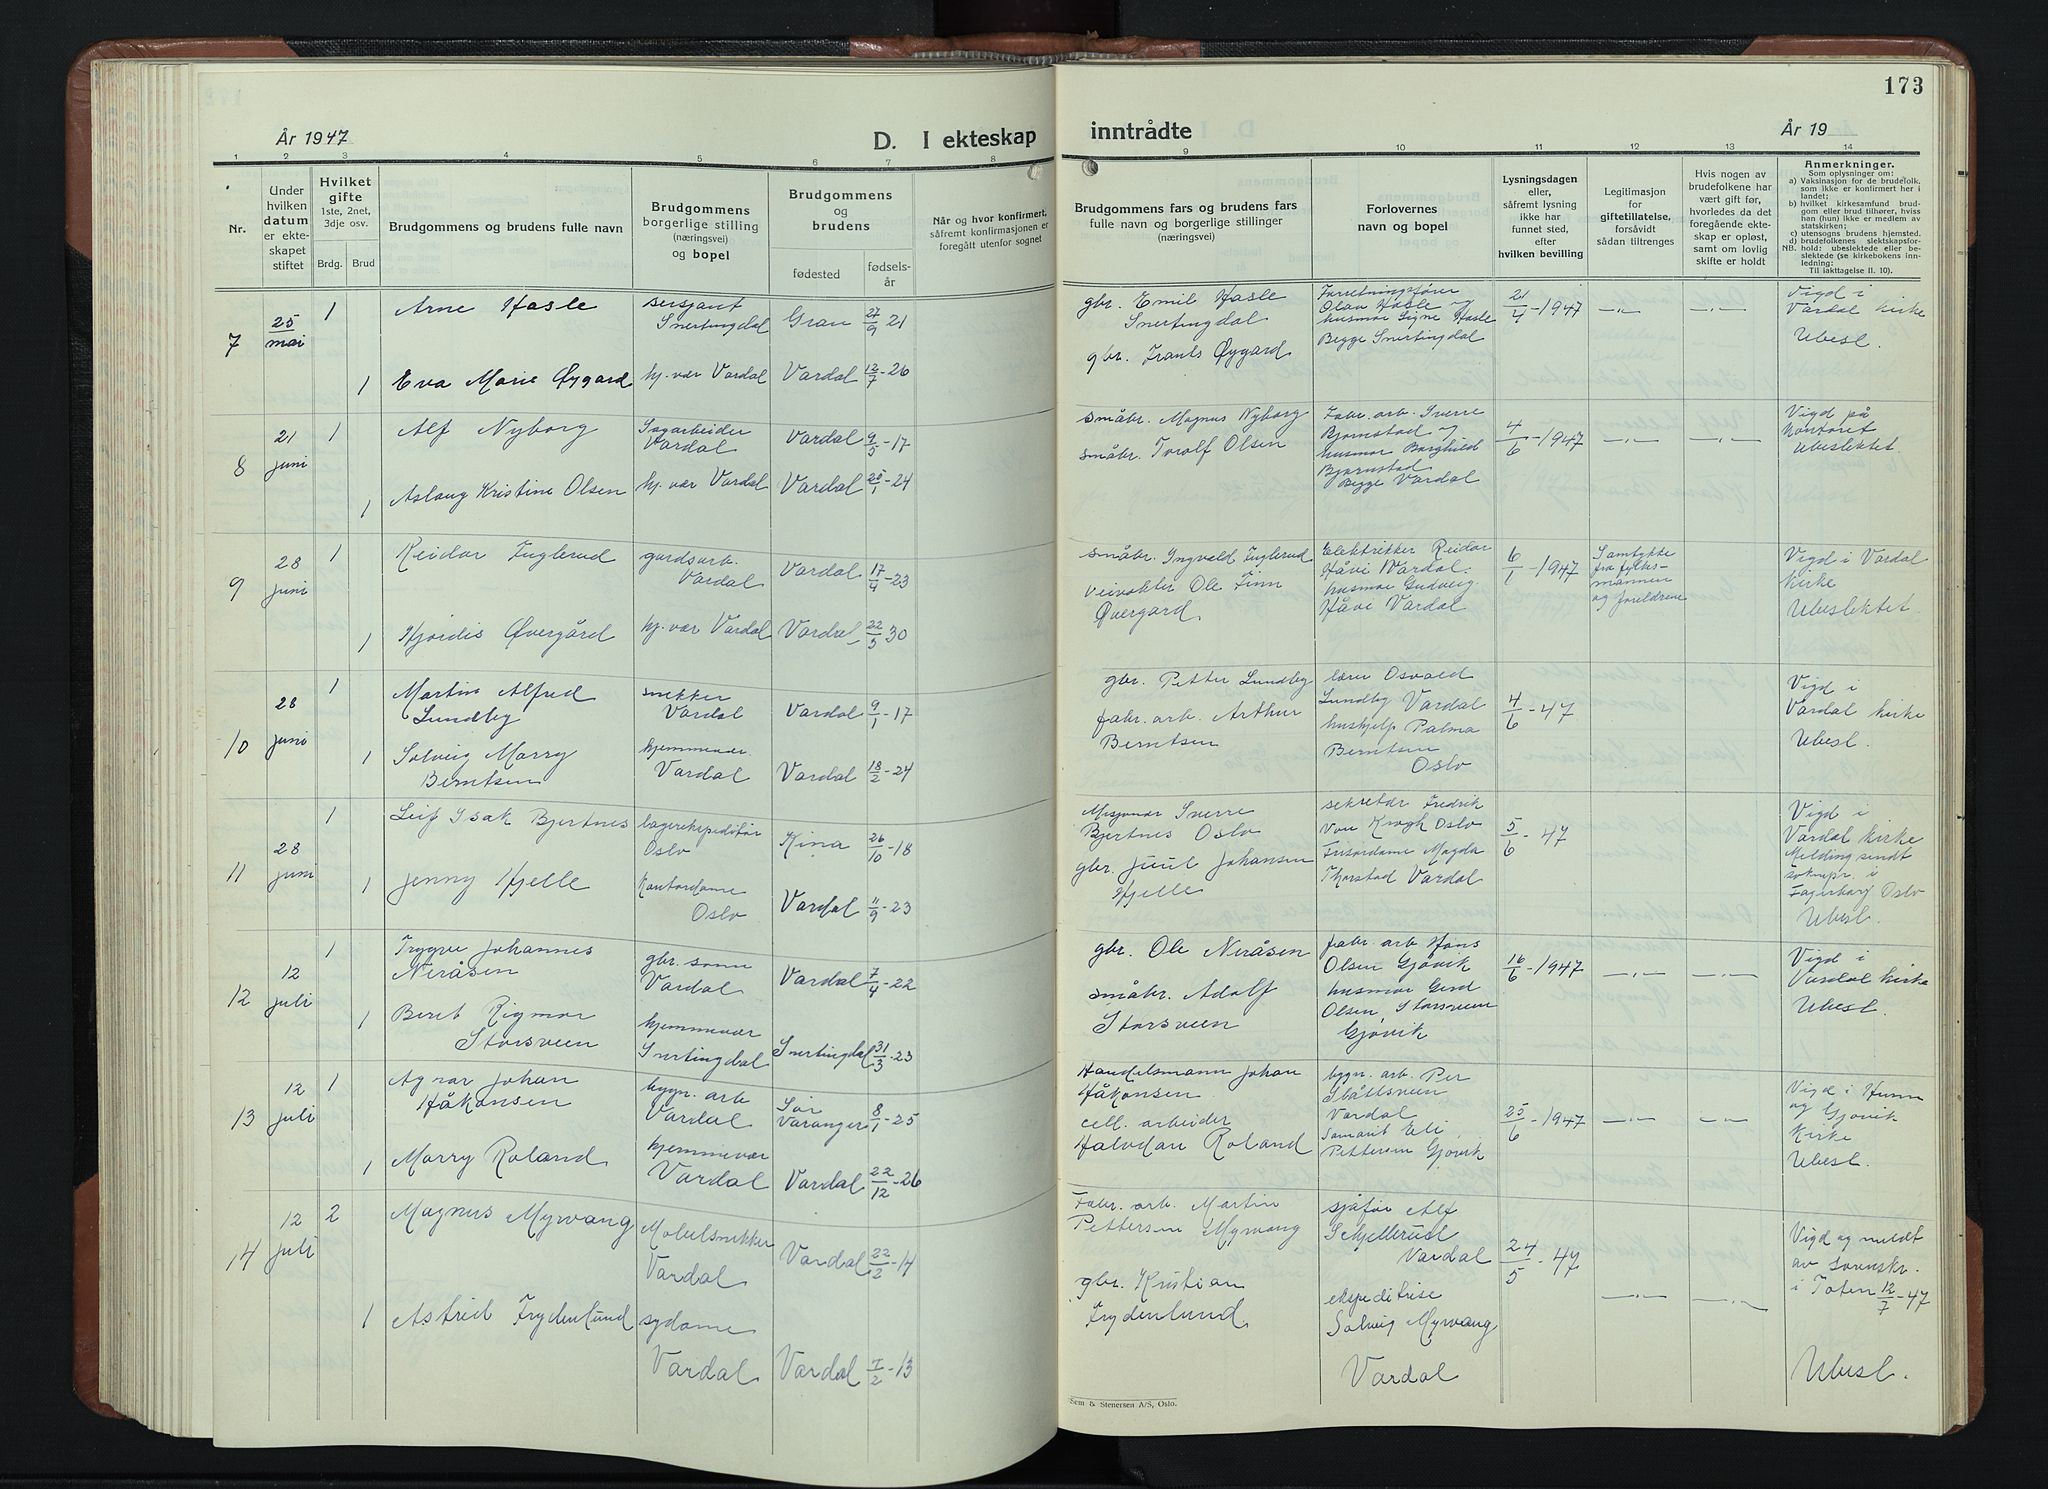 173
År 1947
D. I ekteskap
inntrådte
År 19
1 2 3 4 5 6 7 8 9 10 11 12 13 14
Nr.
Under
hvilken
datum
er ekte-
skapet
stiftet
Hvilket
gifte
1ste, 2net,
3dje osv.
Brdg. Brud
Brudgommens og brudens fulle navn
Brudgommens
borgerlige stilling
(næringsvei)
og bopel
Brudgommens
og
brudens
fødested
fødsels-
år
Når og hvor konfirmert,
såfremt konfirmasjonen er
foregått utenfor sognet
Brudgommens fars og brudens fars
fulle navn og borgerlige stillinger
(næringsvei)
Forlovernes
navn og bopel
Lysningsdagen
eller,
såfremt lysning
ikke har
funnet sted,
efter
hvilken bevilling
Legitimasjon
for
giftetillatelse,
forsåvidt
sådan tiltrenges
Hvis nogen av
brudefolkene har
vært gift før,
hvorledes da det
foregående ekte-
skap er opløst,
samt om lovlig
skifte er holdt
Anmerkninger.
Som oplysninger om:
a) Vaksinasjon for de brudefolk,
som ikke er konfirmert her i
landet;
b) hvilket kirkesamfund brud-
gom eller brud tilhører, hviss
han (hun) ikke er medlem av
statskirken;
c) utensogns brudens hjemsted.
d) brudefolkenes slektskapsfor-
NB. hold: ubeslektede eller be-
slektede (se kirkebokens inn-
ledning:
Til iakttagelse II. 10).
7
25
mai
1
Arne Hasle
sersjant
Snertingdal
Gran 27/9 21
1
Eva Marie Øygard
hj. vær Vardal
Vardal 12/7-26
gbr. Emil Hasle
Snertingdal
gbr. Frants Øygard
Forretningsfører
Olav Hasle og
husmor Signe Hasle
Begge Snertingdal
21/4-1947
—„—
—„—
Vigd i
Vardal kirke
Ubesl.
8
21
juni
1
Alf Nyborg
Sagarbeider
Vardal
Vardal 9/5-17
1
Aslaug Kristine Olsen
hj. vær Vardal
Vardal 25/1-24
småbr. Magnus Nyborg
småbr. Torolf Olsen
Fabr. arb. Sverre
Bjørnstad og
husmor Borghild
Bjørnstad
Begge Vardal
4/6-1947
—„—
—„—
Vigd på
kontoret
Ubeslektet.
9
28
juni
1
Reidar Fuglerud
gardsarb.
Vardal
Vardal 17/4-23
1
Hjørdis Øvergård
hj. vær Vardal
Vardal 22/5 30
småbr. Ingvald Fuglerud
veivokter Ole Finn
Øvergard.
Elektrikker Reidar
Håvi Vardal.
husmor Gudveig
Håvi Vardal
6/1-1947
Samtykke
fra fylkes-
mannen
og foreldrene
Vigd i Vardal
kirke
Ubeslektet.
10
28
juni
1
Martin Alfred
Lundby
snekker
Vardal
Vardal 9/1-17
1
Solveig Marry
Berntsen
hjemmevær.
Vardal
Vardal 18/2-24
gbr. Petter Lundby
fabr. arb. Arthur
Berntsen
lærer Osvald
Lundby Vardal
hushjelp Palma
Berntsen
Oslo
4/6-47
Vigd i
Vardal kirke
Ubesl.
11
28
juni
1
Leif Isak Bjertnes
lagerekspeditør
Oslo
Kina 26/10-18
1
Jenny Hjelle
Kontordame
Oslo
Vardal 11/9-23
Misjonær Sverre
Bjertnes Oslo
gbr. Juul Johansen
Hjelle
sekretær Fredrik
von Krogh Oslo
Frisørdame Magda
Thorstad Vardal
5/6-47
Vigd i
Vardal kirke
Melding sendt
soknepr. i
Fagerborg Oslo
Ubesl.
12
12
juli
1
Trygve Johannes
Neråsen
gbr. sønn
Vardal
Vardal 7/4-22
1
Berit Rigmor
Storsveen
hjemmevær
Snertingdal
Snertingdal 31/3-23
gbr. Ole Neråsen
småbr. Adolf
Storsveen
fabr. arb Hans
Olsen Gjøvik
husmor Gerd
Olsen, Storsveen
Gjøvik
16/6-1947
—„—
—„—
Vigd i
Vardal kirke
Ubesl.
13
12
juli
1
Agnar Johan
Håkonsen
bygn. arb
Vardal
Sør
Varanger 8/1-25
1
Marry Roland
hjemmevær
Vardal
Vardal 22/12-26
Handelsmann Johan
Håkonsen.
cell. arbeider
Halvdan Roland
bygn. arb. Per
Vardal
Samarit Eli
Pettersen Gjøvik
25/6-1947
—„—
—„—
Vigd i Hunn
og Gjøvik
Kirke
Ubesl.
14
12
juli
2
Magnus Myrvang
Møbelsnekker
Vardal
Vardal 22/2-14
1
Astrid Frydenlund
sydame
Vardal
Vardal 7/2-13
Fabr. arb. Martin
Pettersen Myrvang
gbr. Kristian
Frydenlund
sjåfør Alf
Skjellerud
Vardal
ekspeditrise
Solveig Myrvang
Vardal
24/5-47
—„—
—„—
Vigd og meldt
av sorenskr.
i Toten 12/7-47
Ubesl.
Sem & Stenersen A/S, Oslo.